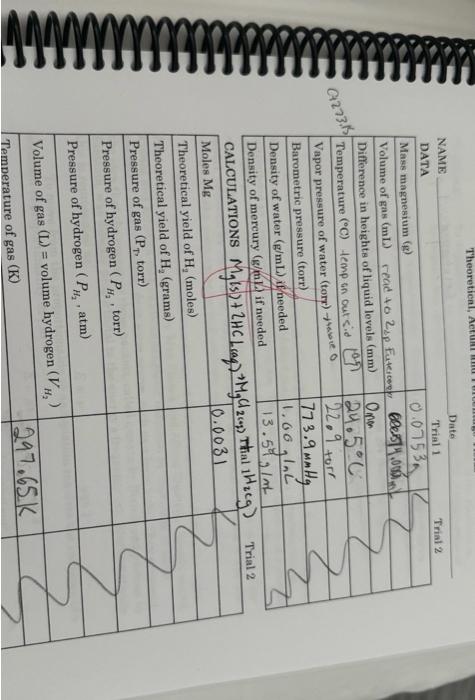 Theoretical, Actual and
NAME
Date
DATA Trial 1 Trial 2
Mass magnesium (g) 0.0753g
Volume of gas (mL) read to 2dp
Difference in heights of liquid levels (mm) 0mm
Temperature (°C) 24.5°C
Vapor pressure of water (torr) 22.9 torr
Barometric pressure (torr) 773.9 mmHg
Density of water (g/mL) if needed 1.00 g/mL
Density of mercury (g/mL) if needed 13.59 g/mL
CALCULATIONS Mg(s) + 2HCl(aq) → MgCl2(aq) + 1H2(g)
Trial 1 Trial 2
Moles Mg 0.0031
Theoretical yield of H₂ (moles)
Theoretical yield of H₂ (grams)
Pressure of gas (P_T, torr)
Pressure of hydrogen (P_H₂, torr)
Pressure of hydrogen (P_H₂, atm)
Volume of gas (L) = volume hydrogen (V_H₂)
Temperature of gas (K) 297.65K